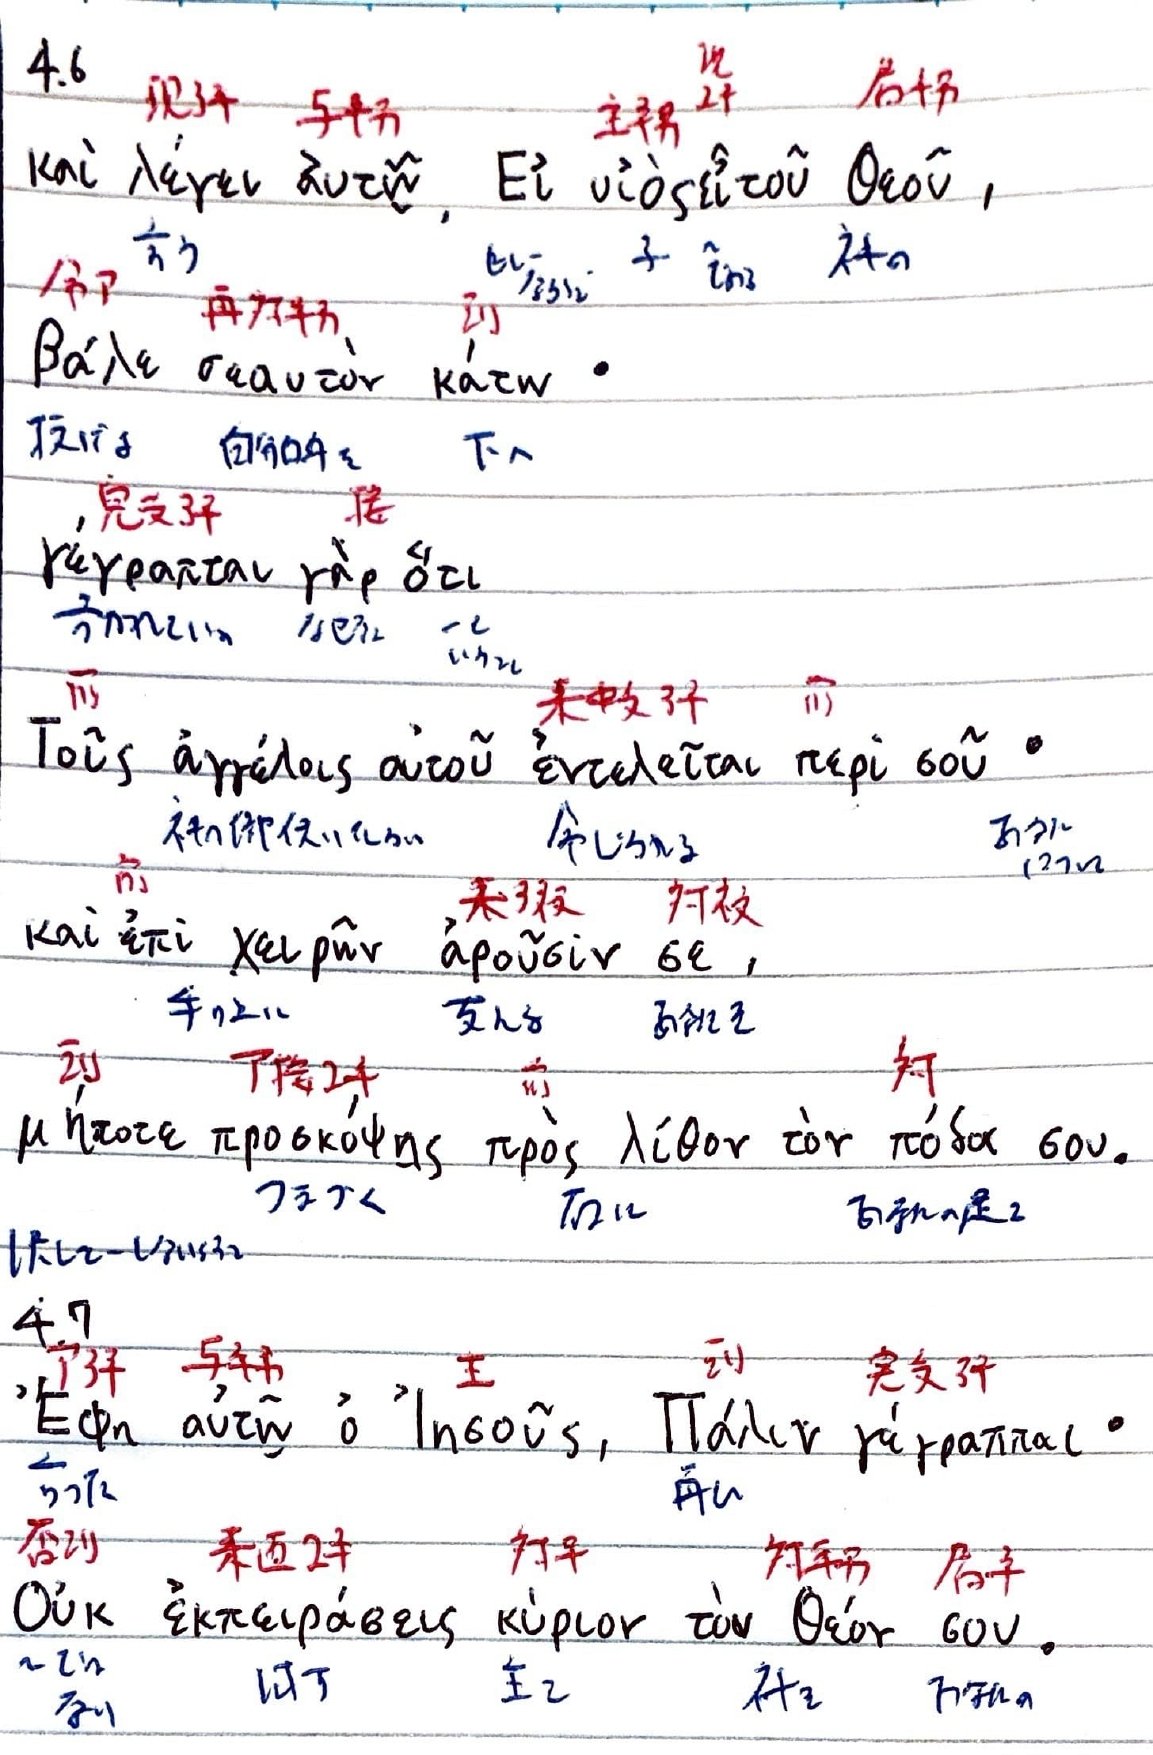 4.6
現3単 与単男 主単男 現2単 属単男
καὶ λέγει ἀυτῷ, Εἰ υἱὸς εἶ τοῦ Θεοῦ,
言う もし〜ならば 子 である 神の
命ア 再対単男 副
βάλε σεαυτὸν κάτω ·
投げる 自分自身を 下へ
完受3単 接
γέγραπται γὰρ ὅτι
言われている なぜなら 〜ということ
前 未中受3単 前
Τοῖς ἀγγέλοις αὐτοῦ ἐντελεῖται περὶ σοῦ ·
神の御使い 命じられる あなたについて
前 未3複
καὶ ἐπὶ χειρῶν ἀροῦσίν σε,
手の上に 支える あなたを
副 ア接2単 前 対
μήποτε προσκόψῃς πρὸς λίθον τὸν πόδα σου.
つまづく 石に あなたの足を
決して〜しないように
4.7
ア3単 与単男 主 副 完受3単
Ἔφη αὐτῷ ὁ Ἰησοῦς, Πάλιν γέγραπται ·
言った 再び
否副 未直2単 対単 対単男 属単
Οὐκ ἐκπειράσεις κύριον τὸν Θεόν σου.
〜ではない 試す 主を 神を あなたの